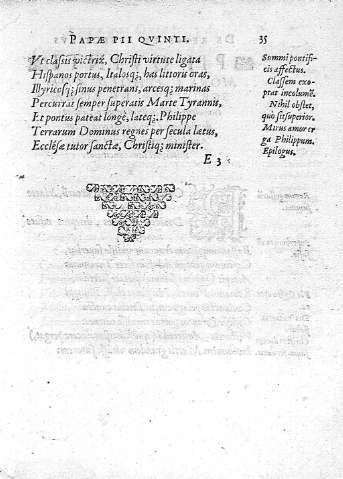 PAPÆ PII QVINTI. 35
Vt classis victrix, Christi virtute ligata
Hispanos portus, Italosq;, has littoris oras,
Illyricosq; sinus penetrans, arcesq; marinas
Percurrat semper superatis Marte Tyrannis,
Et pontus pateat longè, lateq;, Philippe
Terrarum Dominus regnes per secula letus,
Ecclesæ tutor sanctæ, Christiq; minister.
E 3
Summi pontifi-
cis affectus.
Classem exo-
ptat incolumē.
Nihil obstet,
quò sit superior.
Mirus amor er
ga Philippum.
Epilogus.